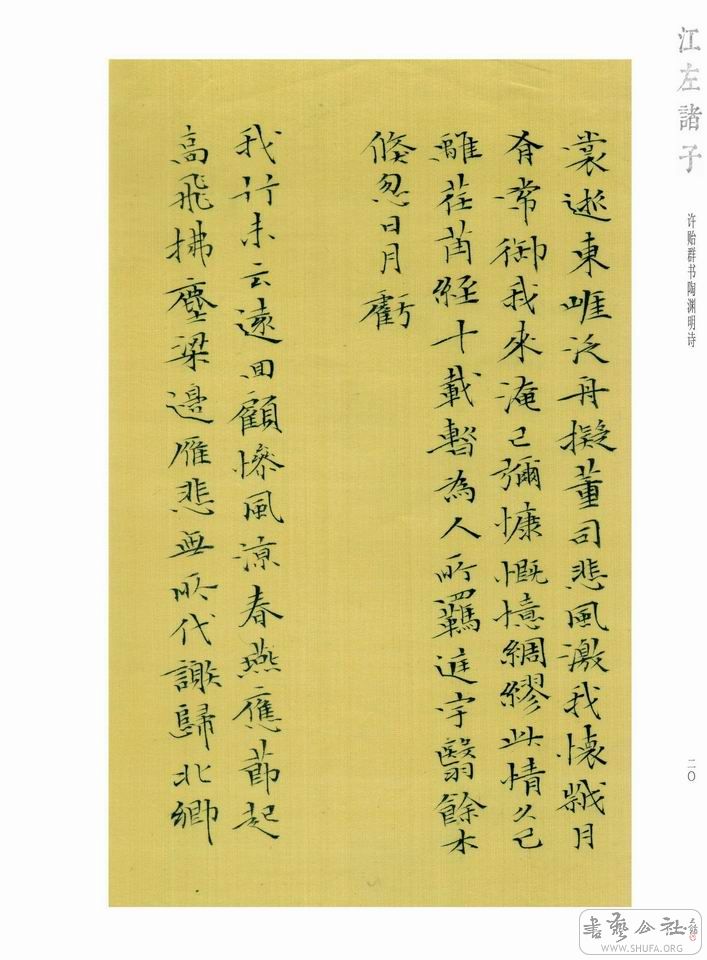 江左諸子
许贻群书陶渊明诗
二〇
裳逝東崖泛舟擬董司悲風激我懷歲月
有常御我來淹已彌慷慨憶綢繆此情久已
離荏苒經十載暫為人所羈庭宇翳餘木
倏忽日月虧
我行未云遠回顧慘風涼春燕應節起
高飛拂塵梁邊雁悲無所代謝歸北鄉
書藝公社
WWW.SHUFA.ORG